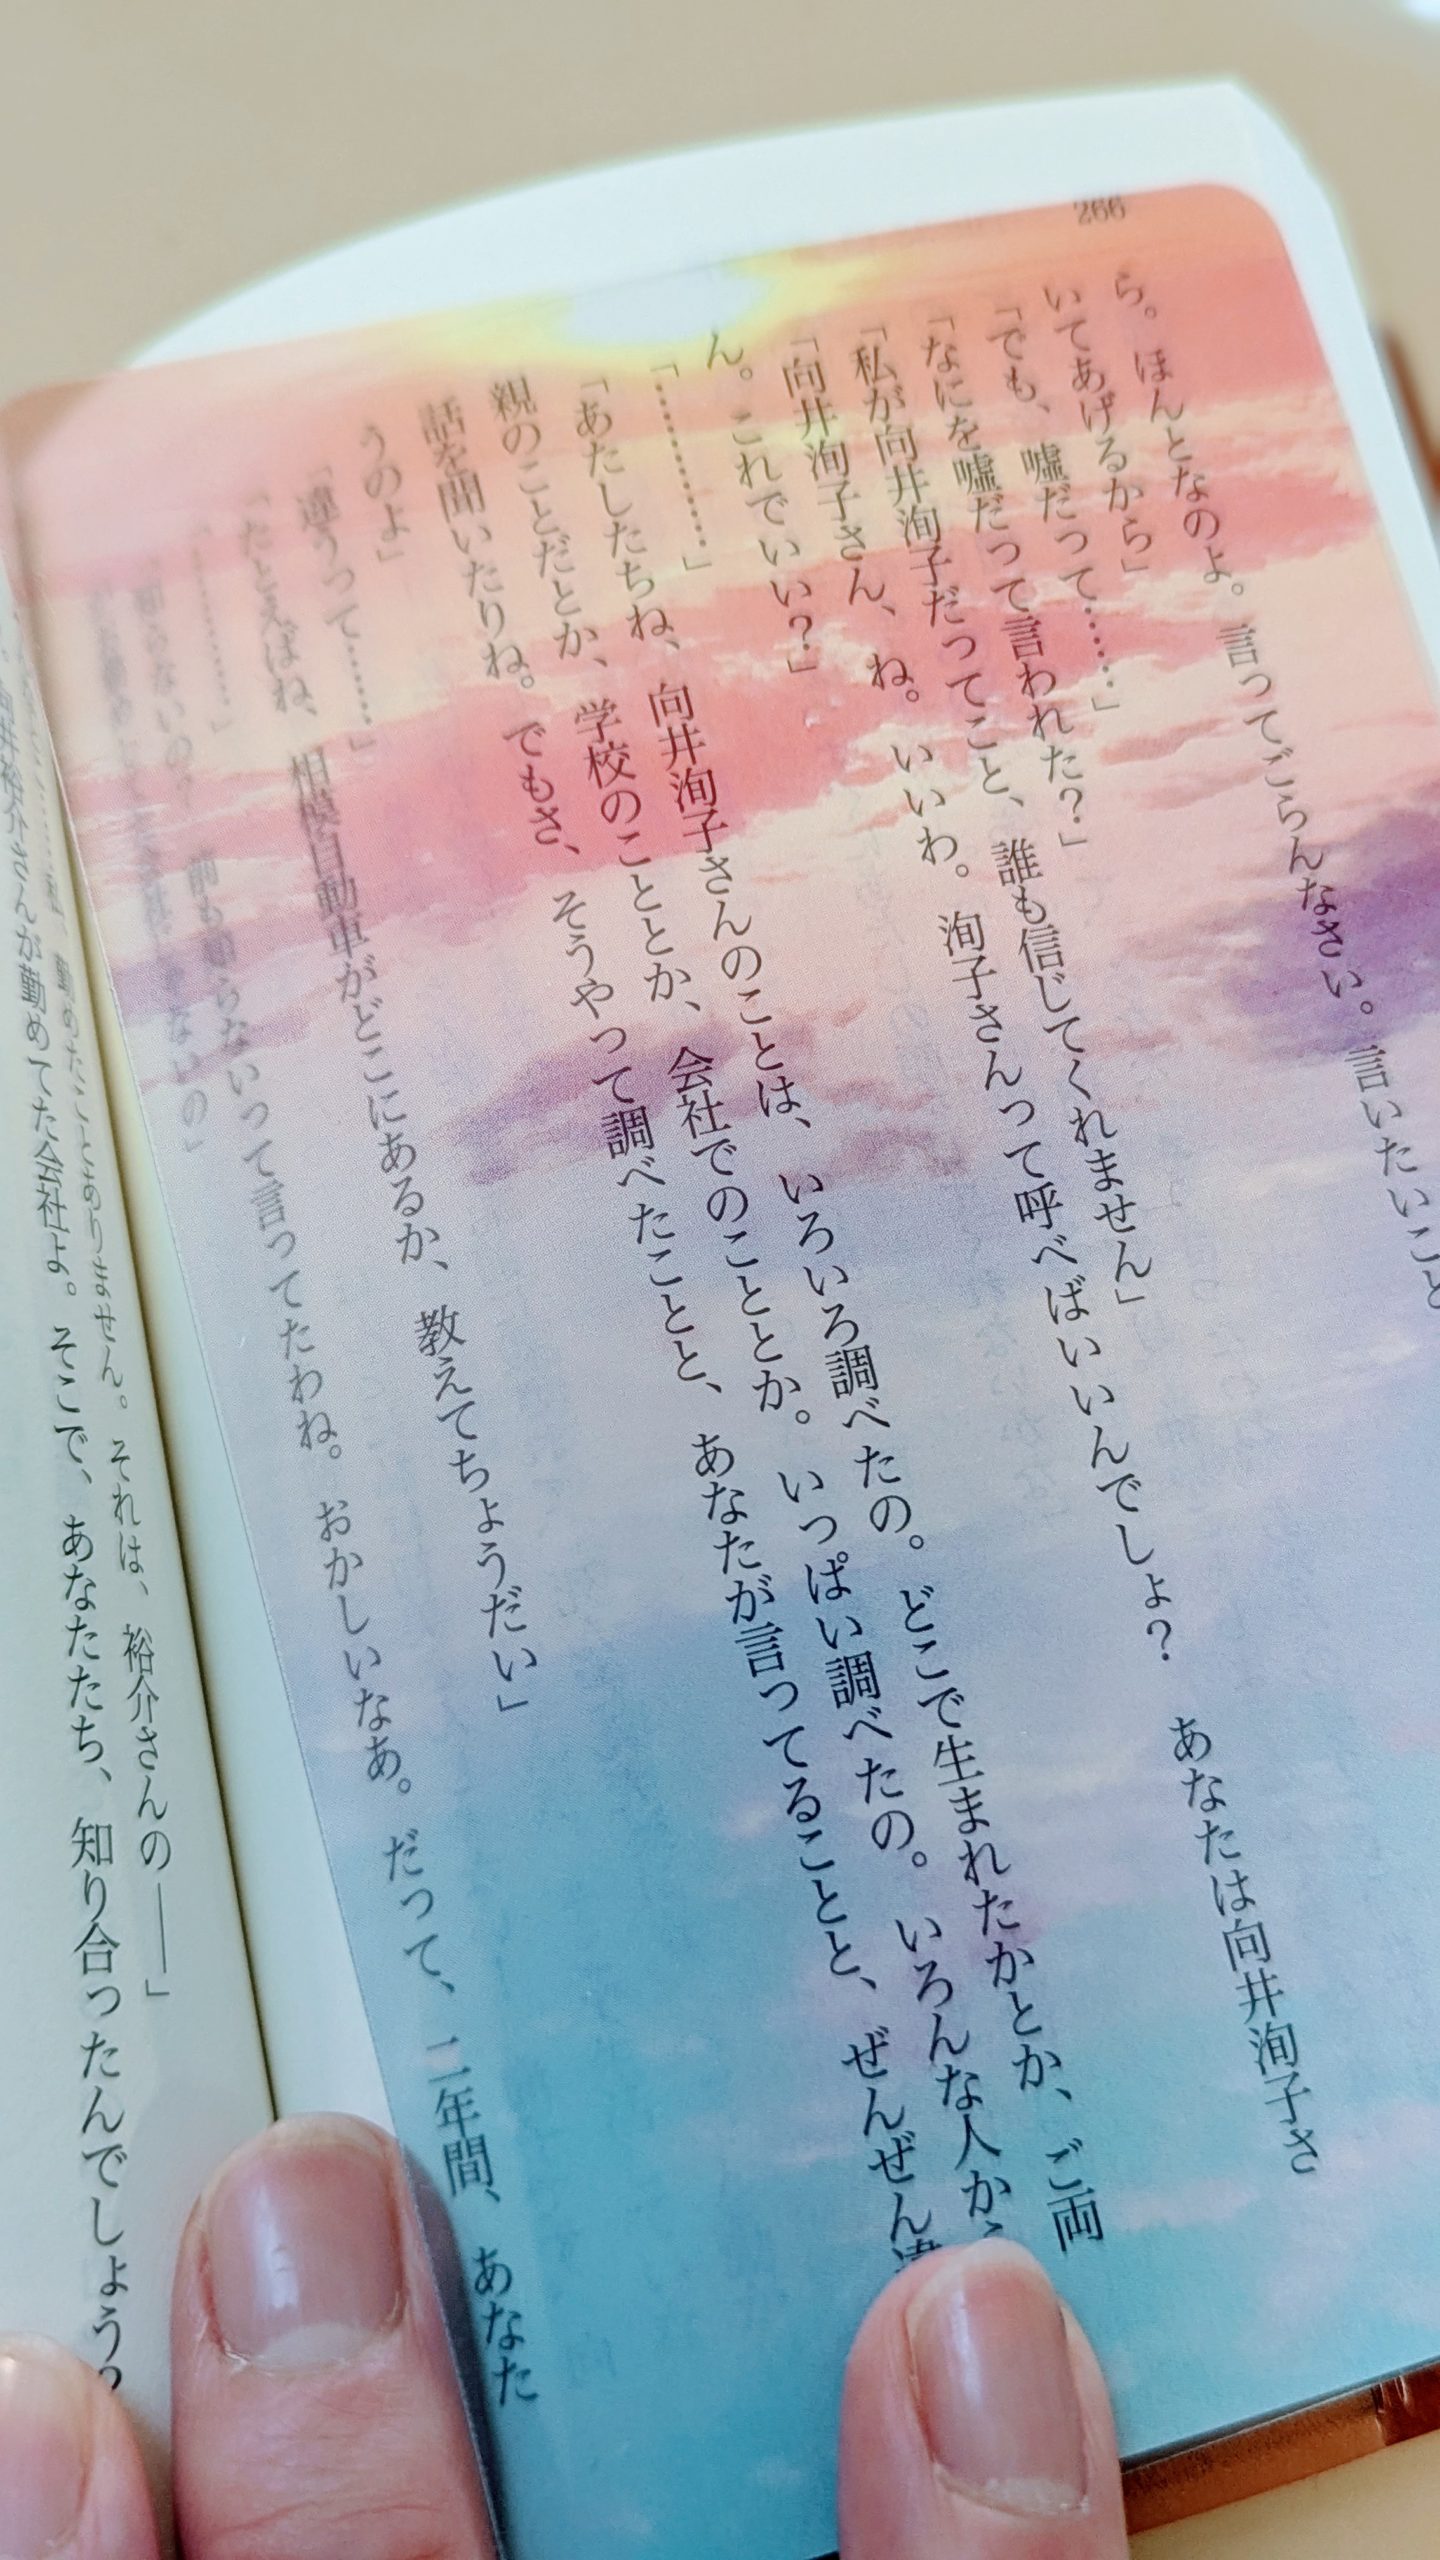 266
ら。ほんとなのよ。言ってごらんなさい。言いたいこと
いてあげるから」
「でも、嘘だって……」
「なにを嘘だって言われた?」
「私が向井洵子だってこと、誰も信じてくれません」
「向井洵子さん、ね。いいわ。洵子さんって呼べばいいんでしょ? あなたは向井洵子さ
ん。これでいい?」
「…………」
「あたしたちね、向井洵子さんのことは、いろいろ調べたの。どこで生まれたかとか、ご両
親のことだとか、学校のこととか、会社でのこととか。いっぱい調べたの。いろんな人から
話を聞いたりね。でもさ、そうやって調べたことと、あなたが言ってることと、ぜんぜん違
うのよ」
「違うって……」
「たとえばね、相模自動車がどこにあるか、教えてちょうだい」
「…………」
前も知らないって言ってたわね。おかしいなあ。だって、二年間、あなた
ないの」
勤めたことありません。それは、裕介さんの――」
向井裕介さんが勤めてた会社よ。そこで、あなたたち、知り合ったんでしょう?